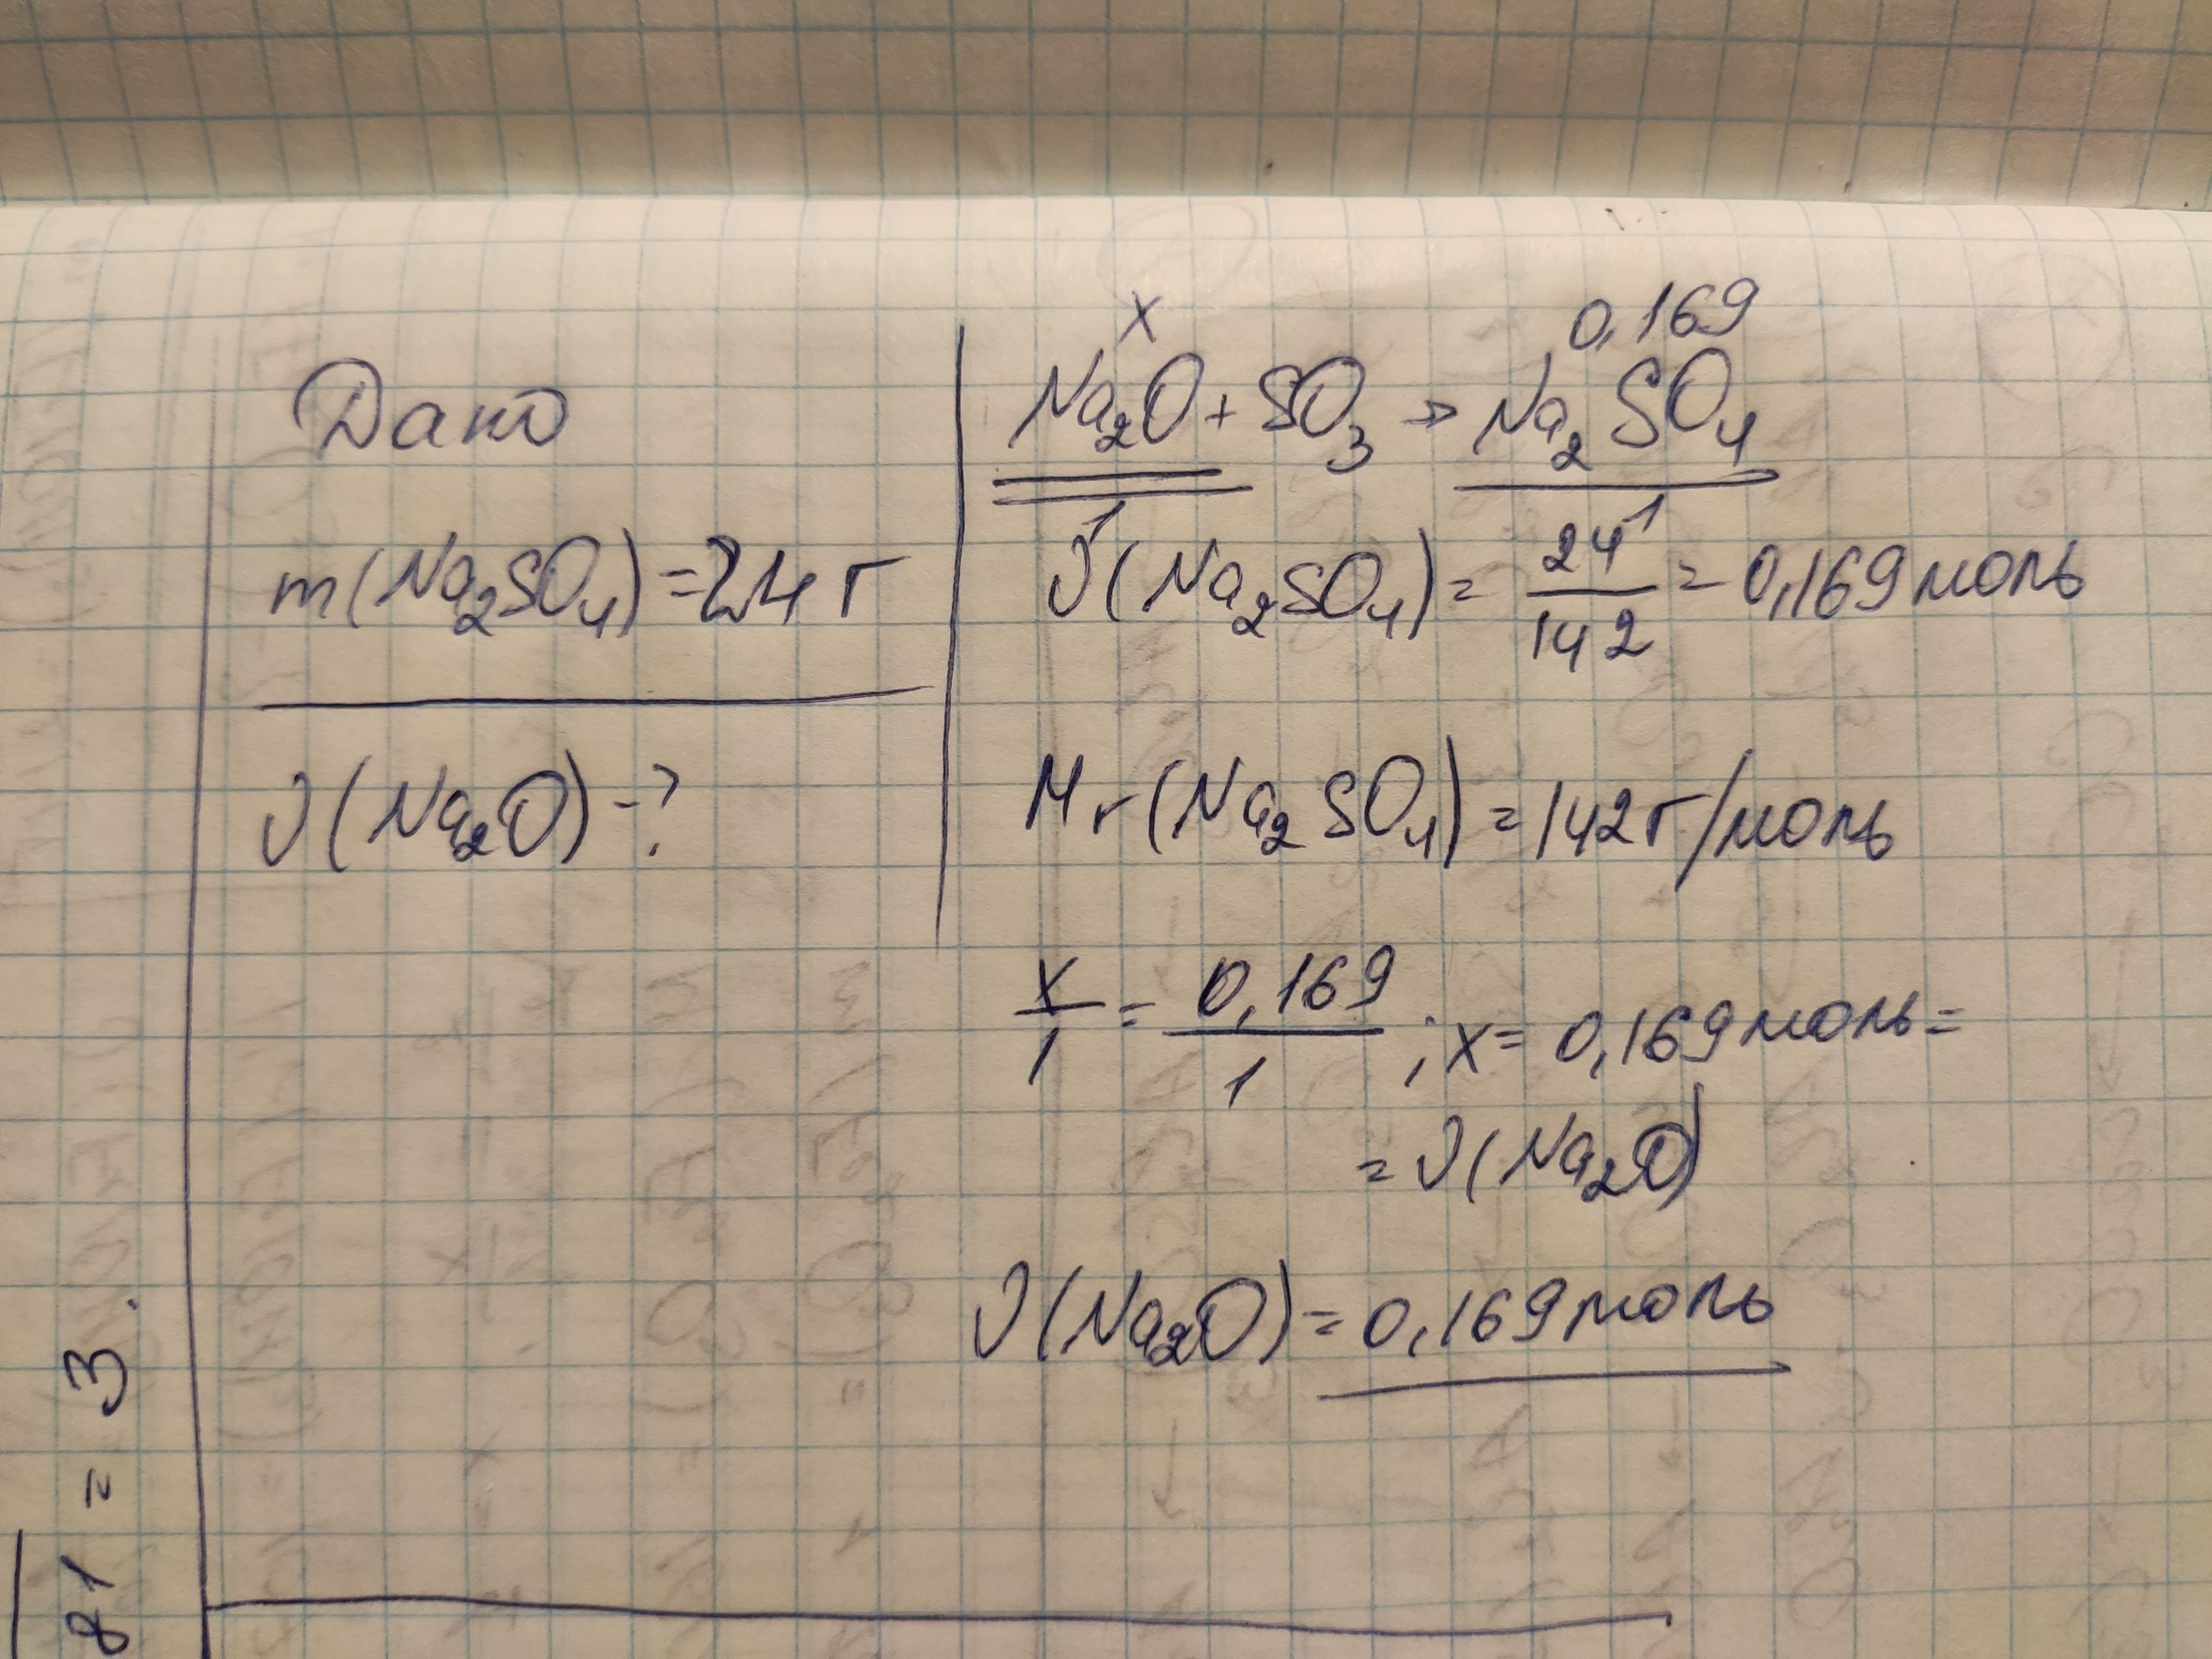 Дано
m(Na₂SO₄)=24 г
ν(Na₂O)-?
x 0,169
Na₂O + SO₃ → Na₂SO₄
1 1
ν(Na₂SO₄) = 24/142 = 0,169 моль
Mr(Na₂SO₄) = 142 г/моль
x/1 = 0,169/1 ; x = 0,169 моль =
= ν(Na₂O)
ν(Na₂O) = 0,169 моль
81 = 3.